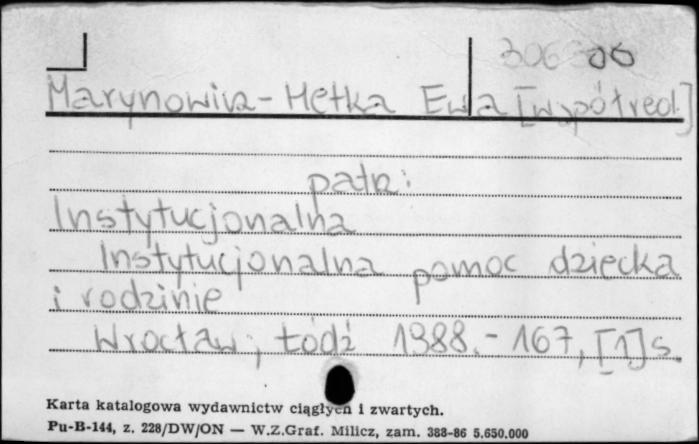 Marynowicz-Hetka Ewa [współred.]
patrz:
Instytucjonalna
Instytucjonalna pomoc dziecka
i rodzinie
Wrocław, Łódź 1988.- 167, [1] s.
Karta katalogowa wydawnictw ciągłych i zwartych.
Pu-B-144, z. 228/DW/ON — W.Z.Graf. Milicz, zam. 388-86 5.650.000